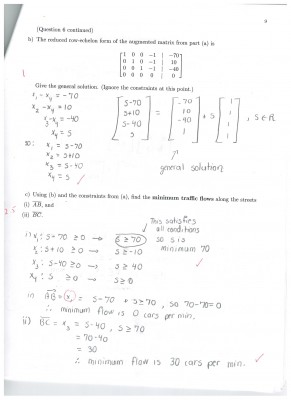 9
(Question 6 continued)
b) The reduced row-echelon form of the augmented matrix from part (a) is
1 0 0 -1 | -70
0 1 0 -1 | 10
0 0 1 -1 | -40
0 0 0 0 | 0
Give the general solution. (Ignore the constraints at this point.)
x₁ - x₄ = -70
x₂ - x₄ = 10
x₃ - x₄ = -40
x₄ = s
so: x₁ = s - 70
x₂ = s + 10
x₃ = s - 40
x₄ = s
[s-70, s+10, s-40, s] = [-70, 10, -40, 1] + s [1, 1, 1, 1], s ∈ R
general solution
c) Using (b) and the constraints from (a), find the minimum traffic flows along the streets
(i) AB, and
(ii) BC.
i) x₁: s - 70 ≥ 0 → s ≥ 70
x₂: s + 10 ≥ 0 → s ≥ -10
x₃: s - 40 ≥ 0 → s ≥ 40
x₄: s ≥ 0 → s ≥ 0
This satisfies
all conditions
so s is
minimum 70
i) AB = x₁ = s - 70 + s ≥ 70, so 70 - 70 = 0
∴ minimum flow is 0 cars per min.
ii) BC = x₃ = s - 40, s ≥ 70
= 70 - 40
= 30
∴ minimum flow is 30 cars per min.